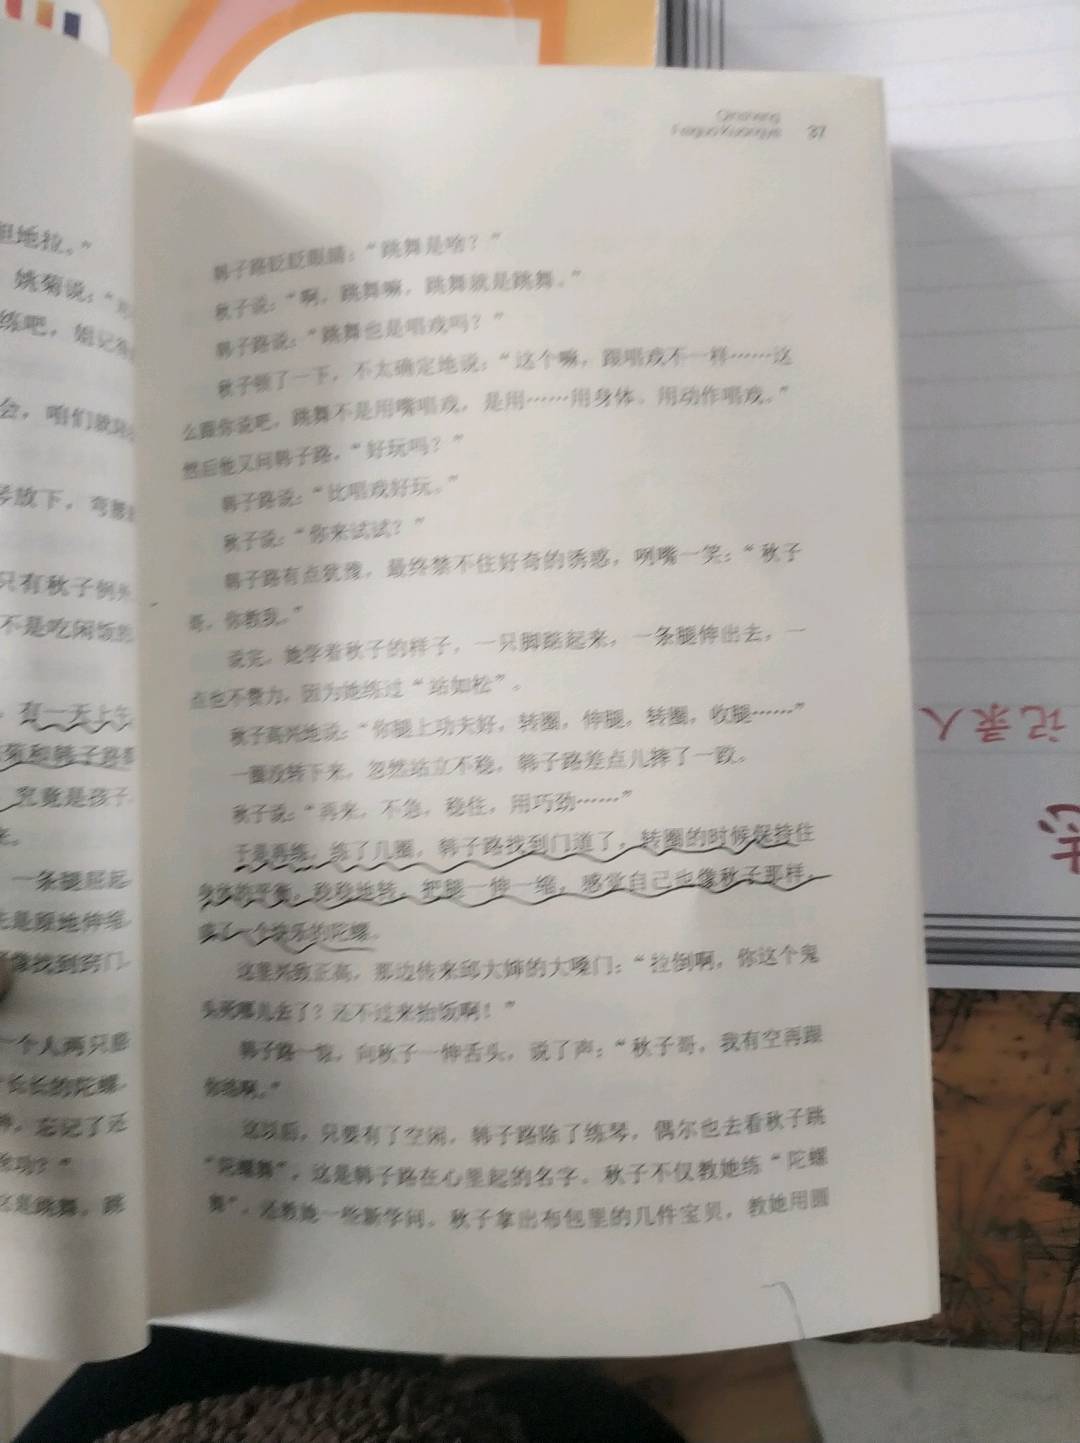 Qinsheng
Feiguo Kuangye 37
韩子路眨眨眼睛：“跳舞是啥？”
秋子说：“啊，跳舞嘛，跳舞就是跳舞。”
韩子路说：“跳舞也是唱戏吗？”
秋子顿了一下，不太确定地说：“这个嘛，跟唱戏不一样……这
么跟你说吧，跳舞不是用嘴唱戏，是用……用身体、用动作唱戏。”
然后他又问韩子路，“好玩吗？”
韩子路说：“比唱戏好玩。”
秋子说：“你来试试？”
韩子路有点犹豫，最终禁不住好奇的诱惑，咧嘴一笑：“秋子
哥，你教我。”
说完，她学着秋子的样子，一只脚踮起来，一条腿伸出去，一
点也不费力，因为她练过“站如松”。
秋子高兴地说：“你腿上功夫好，转圈，伸腿，转圈，收腿……”
一圈没转下来，忽然站立不稳，韩子路差点儿摔了一跤。
秋子说：“再来，不急，稳住，用巧劲……”
于是再练，练了几圈，韩子路找到门道了，转圈的时候保持住
身体的平衡，稳稳地转，把腿一伸一缩，感觉自己也像秋子那样，
成了一个快乐的陀螺。
这里兴致正高，那边传来邱大婶的大嗓门：“拉倒啊，你这个鬼
头死哪儿去了？还不过来抬饭啊！”
韩子路一惊，向秋子一伸舌头，说了声：“秋子哥，我有空再跟
你练啊。”
这以后，只要有了空闲，韩子路除了练琴，偶尔也去看秋子跳
“陀螺舞”，这是韩子路在心里起的名字。秋子不仅教她练“陀螺
舞”，还教她一些新学问。秋子拿出布包里的几件宝贝，教她用圆
地拉。”
姚菊说：“
练吧，姐记
会，咱们就
放下，弯腰
只有秋子例外
不是吃闲饭的
，有一天上午
和韩子路
，究竟是孩子
来。
一条腿屈起
是跟地伸缩
像找到窍门
一个人两只脚
长长的陀螺
，忘记了还
功？”
这是跳舞。跳
记录人